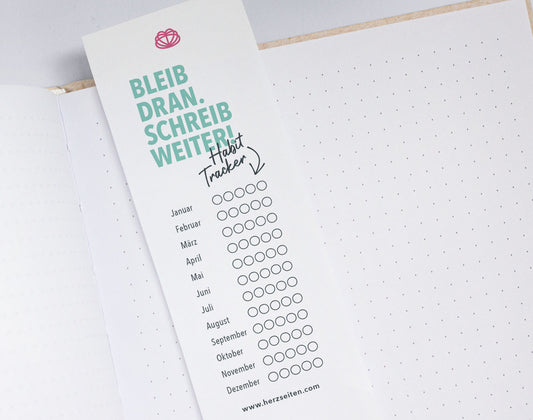 BLEIB
DRAN.
SCHREIB
WEITER!
Habit
Tracker
Januar
Februar
März
April
Mai
Juni
Juli
August
September
Oktober
November
Dezember
www.herzseiten.com